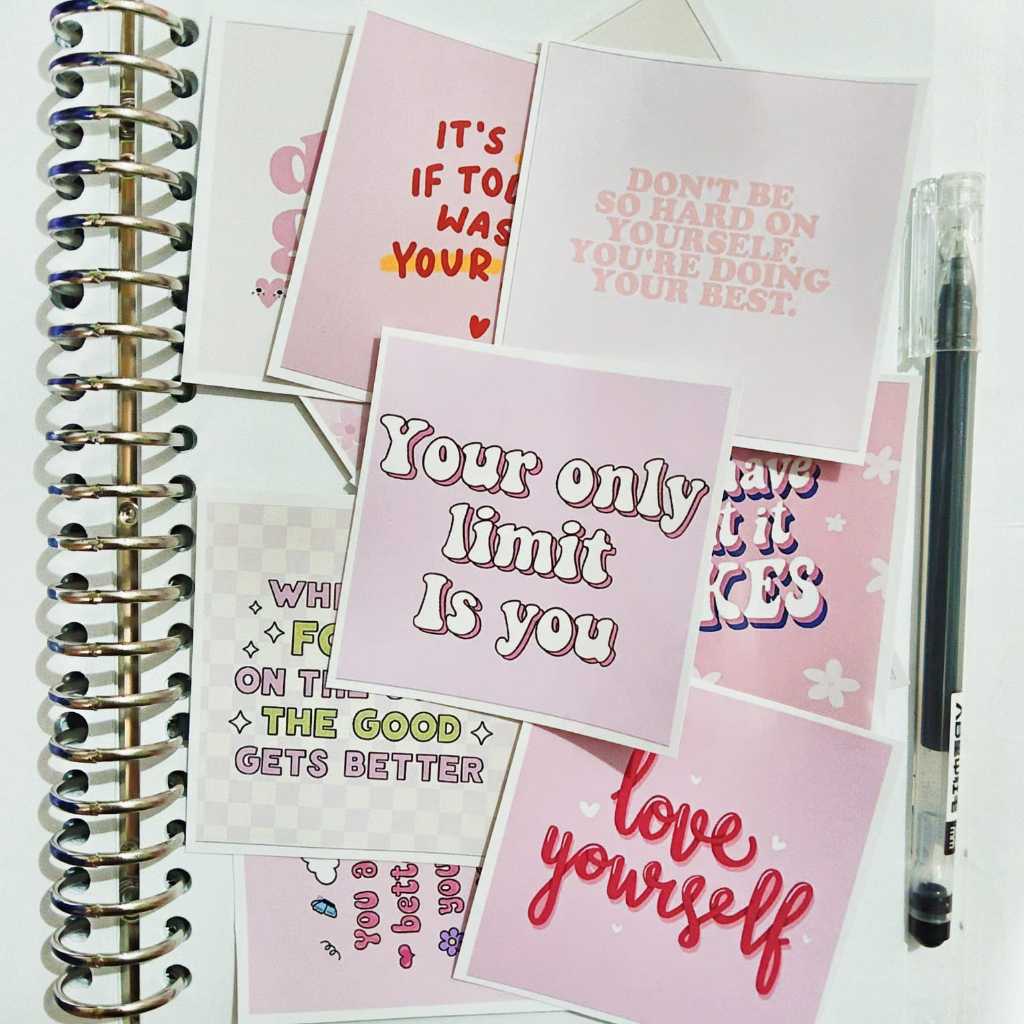 IT'S
IF
WAS
YOUR
DON'T BE
SO HARD ON
YOURSELF.
YOU'RE DOING
YOUR BEST.
Your only
limit
Is you
it
ON
THE GOOD
GETS BETTER
love
yourself
you